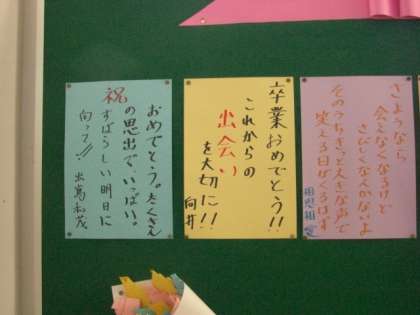 さようなら
会えなくなるけど
さびしくなんかないよ
そのうちきっと大きな声で
笑える日がくるはず
卒業おめでとう!!
これからの
出会い
を大切に!!
向井
祝
おめでとう。たくさん
の思出で、いっぱい。
すばらしい明日に
向って!!